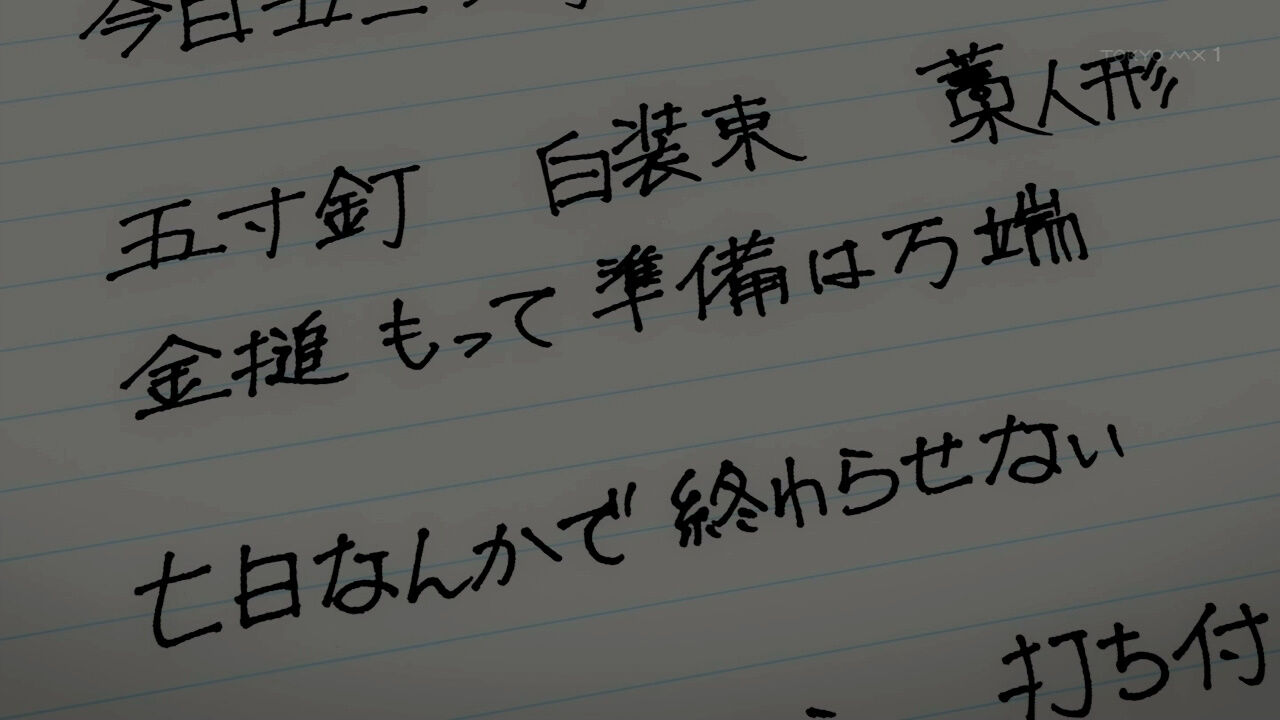 今日
五寸釘 白装束 藁人形
金槌もって準備は万端
七日なんかで終わらせない
打ち付
TOKYO MX 1